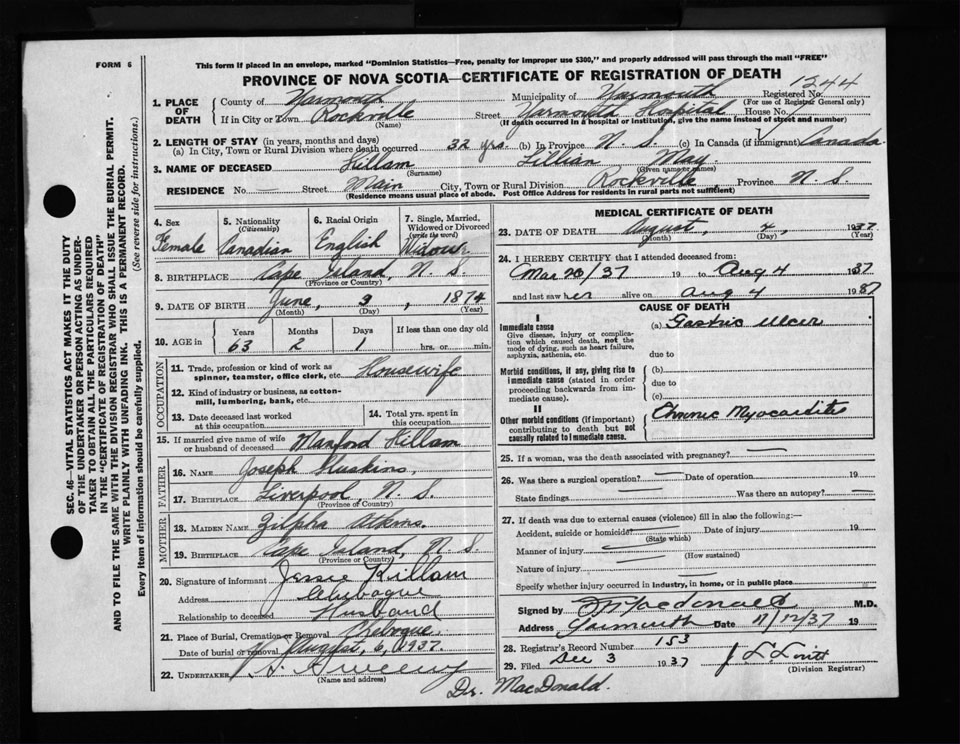 FORM 6
This form if placed in an envelope, marked "Dominion Statistics—Free, penalty for improper use $300," and properly addressed will pass through the mail "FREE"
PROVINCE OF NOVA SCOTIA—CERTIFICATE OF REGISTRATION OF DEATH
Registered No. 1344
(For use of Registrar General only)
1. PLACE OF DEATH
County of Yarmouth Municipality of Yarmouth
If in City or Town Rockville Street Yarmouth Hospital House No.
(Name) (If death occurred in a hospital or institution, give the name instead of street and number)
2. LENGTH OF STAY (in years, months and days)
(a) In City, Town or Rural Division where death occurred 32 yrs. (b) In Province N. S. (c) In Canada (if immigrant) Canada
3. NAME OF DECEASED Killam Lillian May
(Surname) (Given name or names)
RESIDENCE No. — Street Main City, Town or Rural Division Rockville, Province N. S.
(Residence means usual place of abode. Post Office Address for residents in rural parts not sufficient)
4. Sex Female
5. Nationality (Citizenship) Canadian
6. Racial Origin English
7. Single, Married, Widowed or Divorced (write the word) Widow
8. BIRTHPLACE Cape Island, N. S.
(Province or Country)
9. DATE OF BIRTH June, 3, 1874
(Month) (Day) (Year)
10. AGE in Years 63 Months 2 Days 1 If less than one day old
hrs. or min.
OCCUPATION
11. Trade, profession or kind of work as spinner, teamster, office clerk, etc. Housewife
12. Kind of industry or business, as cotton-mill, lumbering, bank, etc.
13. Date deceased last worked at this occupation
14. Total yrs. spent in this occupation
15. If married give name of wife or husband of deceased Manford Killam
FATHER
16. NAME Joseph Huskins
17. BIRTHPLACE Liverpool, N. S.
(Province or Country)
MOTHER
18. MAIDEN NAME Zilpha Atkins.
19. BIRTHPLACE Cape Island, N. S.
(Province or Country)
20. Signature of informant Jessie Killam
Address Chebogue
Relationship to deceased Husband
21. Place of Burial, Cremation or Removal Chebogue
Date of burial or removal August, 6, 1937.
22. UNDERTAKER V. S. Sweeny
(Name and address)
MEDICAL CERTIFICATE OF DEATH
23. DATE OF DEATH August, 4, 1937
(Month) (Day) (Year)
24. I HEREBY CERTIFY that I attended deceased from:
Mar 20/37 19 to Aug 4 1937
and last saw her alive on Aug 4 1937
CAUSE OF DEATH
I
Immediate cause (a) Gastric Ulcer
Give disease, injury or complication which caused death, not the mode of dying, such as heart failure, asphyxia, asthenia, etc.
due to
Morbid conditions, if any, giving rise to immediate cause (stated in order proceeding backwards from immediate cause).
(b)
due to
(c)
II
Other morbid conditions (if important) contributing to death but not causally related to immediate cause.
Chronic Myocarditis
25. If a woman, was the death associated with pregnancy? —
26. Was there a surgical operation? — Date of operation 19
State findings — Was there an autopsy? —
27. If death was due to external causes (violence) fill in also the following:—
Accident, suicide or homicide? Date of injury 19
(State which)
Manner of injury
(How sustained)
Nature of injury
Specify whether injury occurred in industry, in home, or in public place
Signed by Macdonald M.D.
Address Yarmouth Date 11/12/37 19
28. Registrar's Record Number 153
29. Filed Dec 3 1937 J. L. Lovitt
(Division Registrar)
Dr. MacDonald.
SEC. 46—VITAL STATISTICS ACT MAKES IT THE DUTY
OF THE UNDERTAKER OR PERSON ACTING AS UNDER-
TAKER TO OBTAIN ALL THE PARTICULARS REQUIRED
IN THE "CERTIFICATE OF REGISTRATION OF DEATH"
AND TO FILE THE SAME WITH THE DIVISION REGISTRAR WHO SHALL ISSUE THE BURIAL PERMIT.
WRITE PLAINLY WITH UNFADING INK. THIS IS A PERMANENT RECORD.
Every item of information should be carefully supplied. (See reverse side for instructions.)